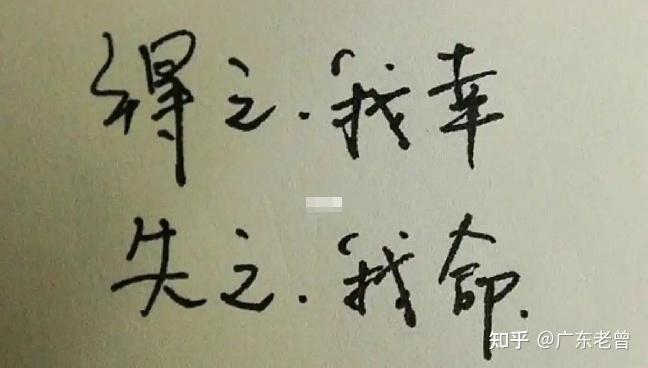 得之.我幸
失之.我命.
知乎 @广东老曾